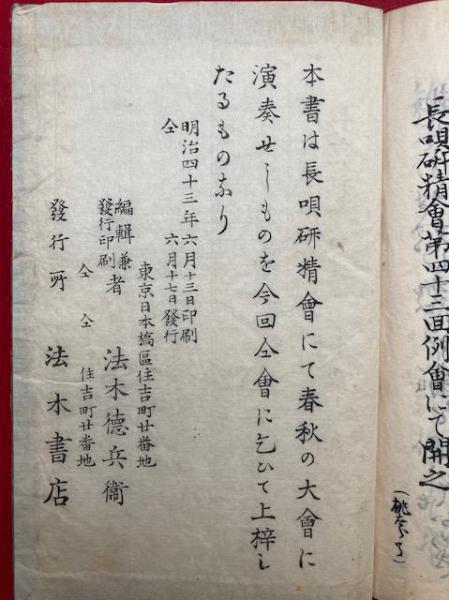 長唄硏精會第四十三回例會にて開之
本書は長唄硏精會にて春秋の大會に
演奏せしものを今回仝會に乞ひて上梓し
たるものなり
明治四十三年六月十三日印刷
仝 六月十七日發行
東京日本橋區住吉町廿番地
編輯兼發行印刷者 法木德兵衞
仝 仝 住吉町廿番地
發行所 法木書店